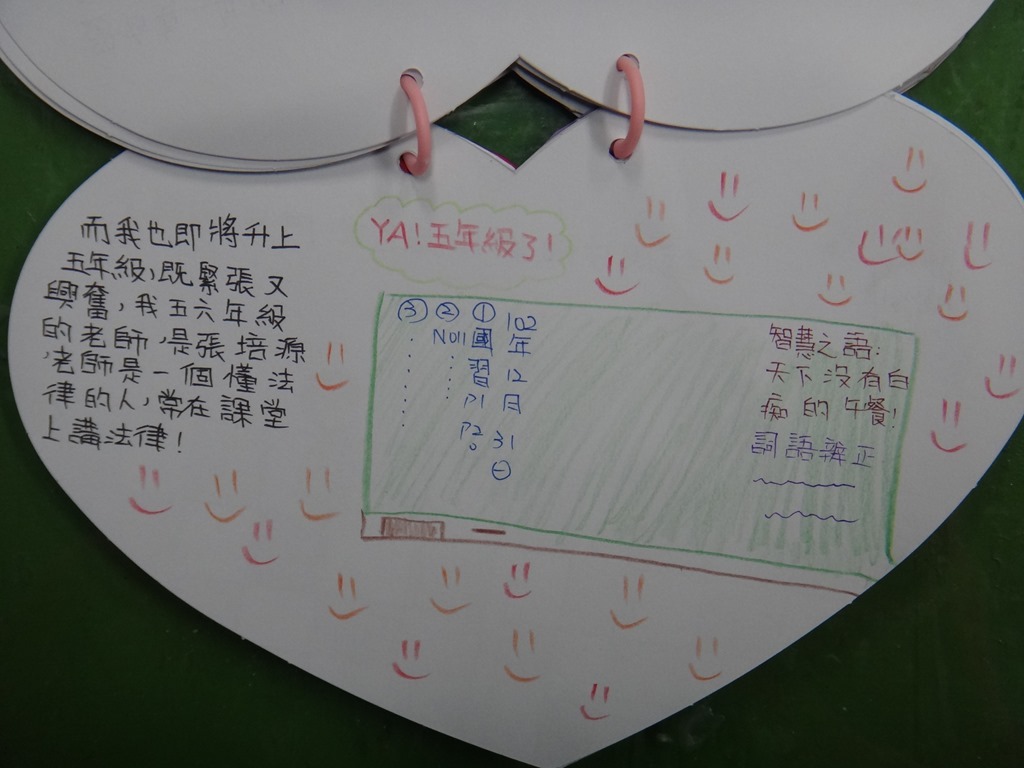 而我也即將升上
五年級,既緊張又
興奮,我五六年級
的老師,是張培源
老師,老師是一個懂法
律的人,常在課堂
上講法律!
YA!五年級了!
102年12月31日
①國習P1 P2。
② No11
③
智慧之語:
天下沒有白
痴的午餐!
詞語辨正